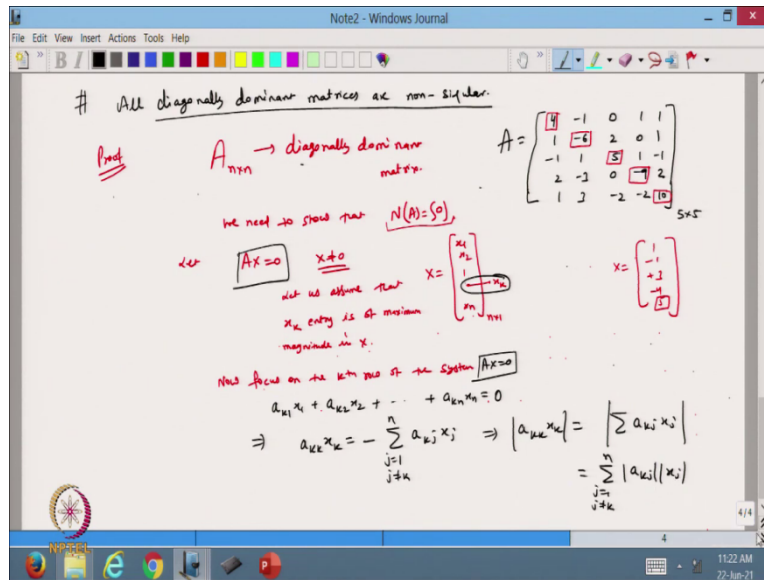 Note2 - Windows Journal
File Edit View Insert Actions Tools Help
# All diagonally dominant matrices are non-sigular.
Proof
A_{n×n} → diagonally dominant matrix.
A = [ 4 -1 0 1 1
1 -6 2 0 1
-1 1 5 1 -1
2 -3 0 -9 2
1 3 -2 -2 10 ]_{5×5}
We need to show that N(A)={0}
Let Ax=0 x≠0
Let us assume that
x_k entry is of maximum
magnitude in x.
x = [ x_1
x_2
⋮
x_k
x_n ]_{n×1}
x = [ 1
-1
+3
-4
5 ]
Now focus on the kth row of the system Ax=0
a_{k1}x_1 + a_{k2}x_2 + ... + a_{kn}x_n = 0
⇒ a_{kk}x_k = - ∑_{j=1, j≠k}^{n} a_{kj}x_j ⇒ |a_{kk}x_k| = |∑ a_{kj}x_j|
= ∑_{j=1, j≠k}^{n} |a_{kj}||x_j|
NPTEL
4/4
4
11:22 AM
22-Jun-21